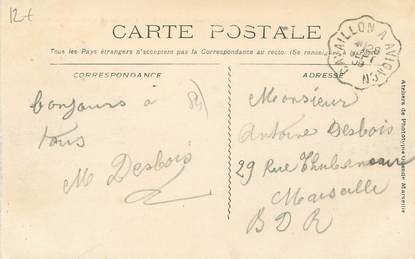 12 t
CARTE POSTALE
Tous les Pays étrangers n'acceptent pas la Correspondance au recto. (Se renseigner
CORRESPONDANCE
ADRESSE
CAVAILLON A AVIGNON
bonjours à
tous
M Desbois
84
Monsieur
Antoine Desbois
29 Rue
Marseille
B D R
Ateliers de Phototypie Marseille